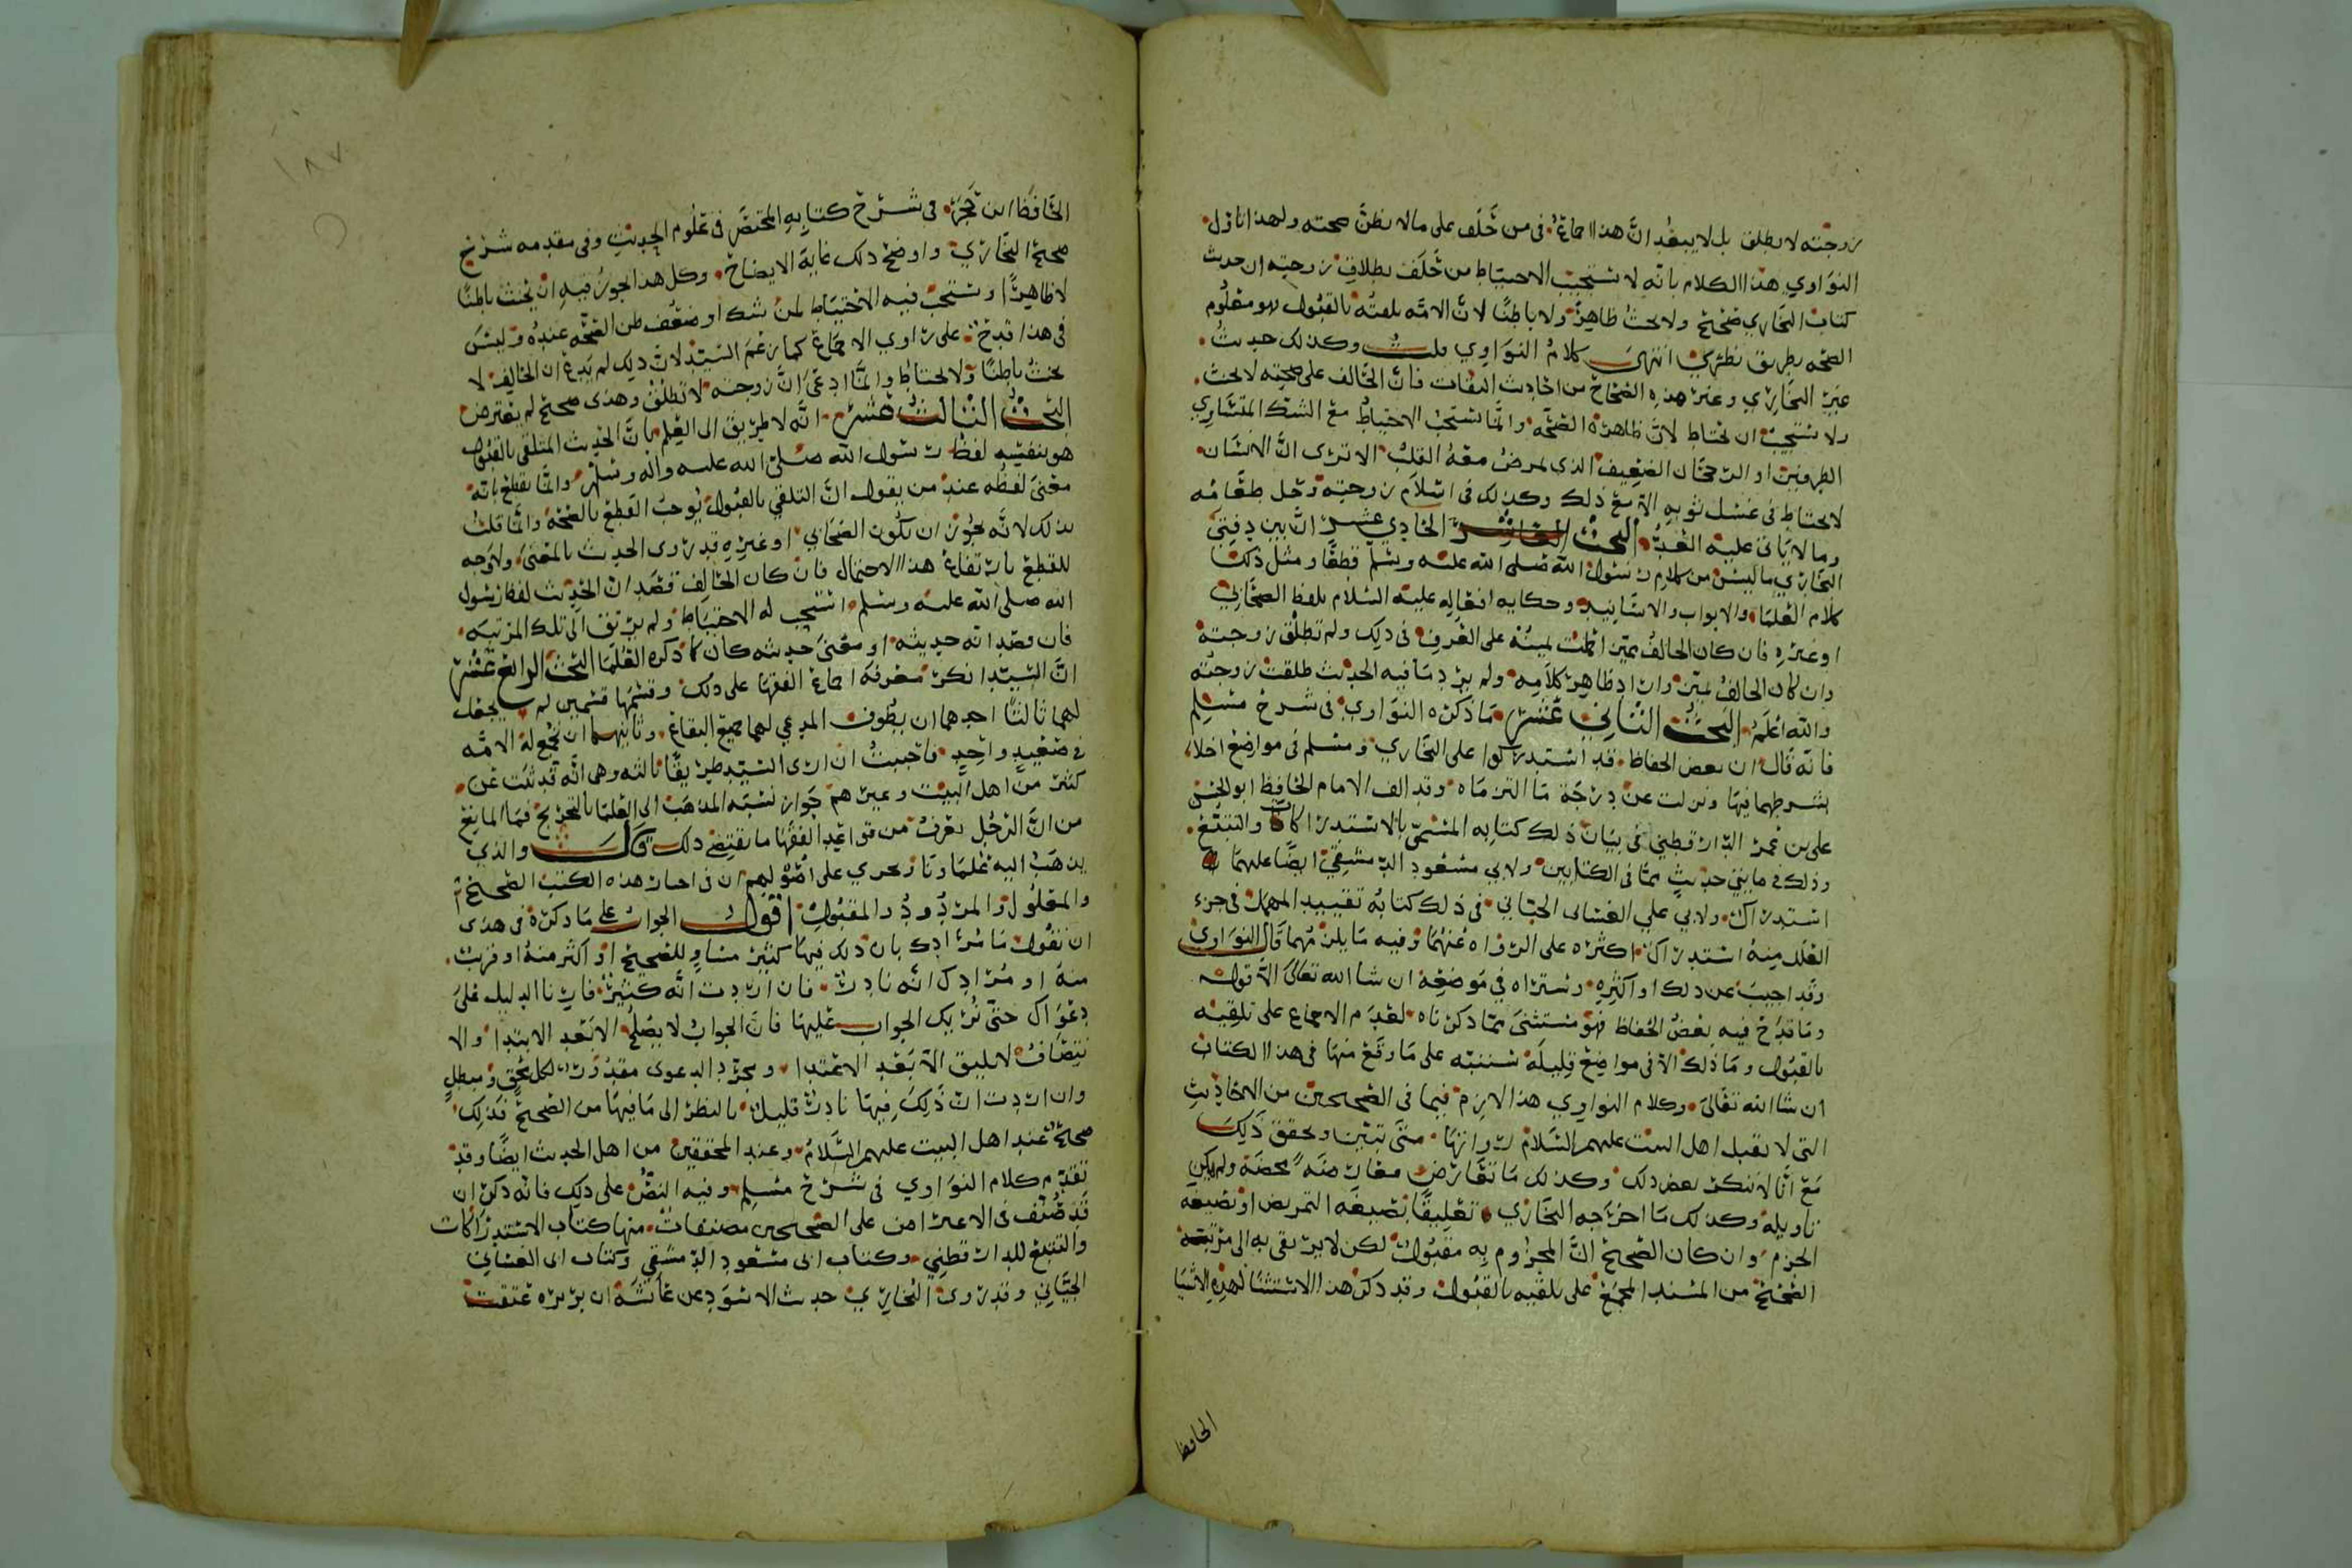 زوجته لا يطلق بل لا يبعد ان هذا اجماع في من حلف على ما لا يظن صحته ولهذا تاول
النواوي هذا الكلام بانه لا يستحب الاحتياط من حلف بطلاق زوجته ان حديث
كتاب البخاري صحيح ولا يحنث ظاهرا ولا باطنا لان الامه تلقته بالقبول فهو معلوم
الصحه بطريق نظري انتهى كلام النواوي قلت وكذلك حديث
غير البخاري وغير هذه الصحاح من احاديث الثقات فان الحالف على صحته لا يحنث
ولا يستحب ان يحتاط لان ظاهره الصحه وانما يستحب الاحتياط مع الشك المتساوي
الطرفين او الرجحان الضعيف الذي يمرض معه القلب الا ترى ان الانسان
لا يحتاط في غسل ثوبه الا مع ذلك وكذلك في اسلام زوجته وحل طعامه
وما لا ياتي عليه العد البحث الحادي عشر ان بين دفتي
البخاري ما ليس من كلام رسول الله صلى الله عليه وسلم قطعا ومثل ذلك
كلام العلما والابواب والاسانيد وحكايه افعاله عليه السلام بلفظ الصحابي
او غيره فان كان الحالف ممن اثبت يمينه على العرف في ذلك ولم تطلق زوجته
وان كان الحالف يمين واراد ظاهر كلامه ولم يرد ما فيه الحديث طلقت زوجته
والله اعلم البحث الثاني عشر ما ذكره النواوي في شرح مسلم
فانه قال ان بعض الحفاظ قد استدركوا على البخاري ومسلم في مواضع اخلا
بشرطهما فيها ونزلت عن درجة ما التزماه وقد الف الامام الحافظ ابو الحسن
علي بن عمر الدارقطني في بيان ذلك كتابه المسمى بالاستدراكات والتتبع
وذلك في مايتي حديث مما في الكتابين ولابي مسعود الدمشقي ايضا عليهما
استدراك ولابي علي الغساني الجياني في ذلك كتابه تقييد المهمل في جزء
العلل منه استدراك اكثره على الرواه عنهما وفيه ما يلزمهما قال النواوي
وقد اجيب عن ذلك او اكثره وستراه في موضعه ان شا الله تعالى الا قوله
وما قدح فيه بعض الحفاظ فهو مستثنى مما ذكرناه لعدم الاجماع على تلقيه
بالقبول وما ذلك الا في مواضع قليله سننبه على ما وقع منها في هذا الكتاب
ان شا الله تعالى وكلام النواوي هذا لازم فيما في الصحيحين من الاحاديث
التي لا يقبل اهل البيت عليهم السلام رواتها متى تبين وتحقق ذلك
مع انا لا ننكر بعض ذلك وكذلك ما تعارض معارضه محضه ولم يكن
تاويله وكذلك ما اخرجه البخاري تعليقا بصيغه التمريض او بصيغه
الجزم وان كان الصحيح ان المجزوم به مقبول لكن لا يرتقي به الى مرتبه
الصحيح من المسند المجمع على تلقيه بالقبول وقد ذكر هذا الاستثنا لهذه الاشيا
الحافظ
١٨٧
الحافظ ابن حجر في شرح كتابه المختصر في علوم الحديث وفي مقدمه شرح
صحيح البخاري واوضح ذلك غاية الايضاح وكل هذا يجوز فيه ان يحنث باطنا
لا ظاهرا ويستحب فيه الاحتياط لمن شك او ضعف ظن الصحه عنده وليس
في هذا قدح على راوي الاجماع كما زعم السيد لان ذلك لم يدع ان الحالف لا
يحنث باطنا ولا يحتاط وانما ادعى ان زوجته لا تطلق وهذى صحيح لم يعترض
البحث الثالث عشر انه لا طريق الى العلم بان الحديث المتلقى بالقبول
هو بنفسه لفظ رسول الله صلى الله عليه واله وسلم وانما يقطع بانه
معنى لفظه عند من يقول ان التلقي بالقبول يوجب القطع بالصحه وانما قلت
بذلك لانه يجوز ان يكون الصحابي او غيره قد روى الحديث بالمعنى ولا وجه
للقطع بارتفاع هذا الاحتمال فان كان الحالف قصد ان الحديث لفظ رسول
الله صلى الله عليه وسلم استحب له الاحتياط ولم يرتق الى تلك المرتبه
فان قصد انه حديثه او معنى حديثه كان كما ذكره العلما البحث الرابع عشر
ان السيد انكر معرفة اجماع الفقها على ذلك وقسمها قسمين لم يجعل
لهما ثالثا احدهما ان يطوف المدعي لهما جميع البقاع وثانيهما ان تجمع له الامه
في صعيد واحد فاحببت ان ارى السيد طريقا ثالثه وهي انه قد ثبت عن
كثير من اهل البيت وغيرهم جواز نسبة المذهب الى العلما بالتخريج فما المانع
من ان الرجل يعرف من قواعد الفقها ما يقتضي ذلك قال والذي
يذهب اليه علماونا ونجري على اصولهم ان في اخبار هذه الكتب الصحيح
والمعلول والمردود والمقبول اقول الجواب على ما ذكره في هذى
ان نقول ما مرادك بان ذلك فيها كثير مساو للصحيح او اكثر منه او قريب
منه او مرادك انه نادر فان اردت انه كثير فارنا الدليل على
دعواك حتى نريك الجواب عليها فان الجواب لا يصلح الا بعد الابتدا والا
نتصاف لا يليق الا بعد الاعتدا ومجرد الدعوى مقدور لكل محق ومبطل
وان اردت ان ذلك فيها نادر قليل بالنظر الى ما فيها من الصحيح فذلك
صحيح عند اهل البيت عليهم السلام وعند المحققين من اهل الحديث ايضا وقد
تقدم كلام النواوي في شرح مسلم وفيه النص على ذلك فانه ذكر ان
قد صنف في الاعتراض على الصحيحين مصنفات منها كتاب الاستدراكات
والتتبع للدارقطني وكتاب ابي مسعود الدمشقي وكتاب ابي الغساني
الجياني وقد روى البخاري حديث الاسود عن عائشه ان بريره عتقت